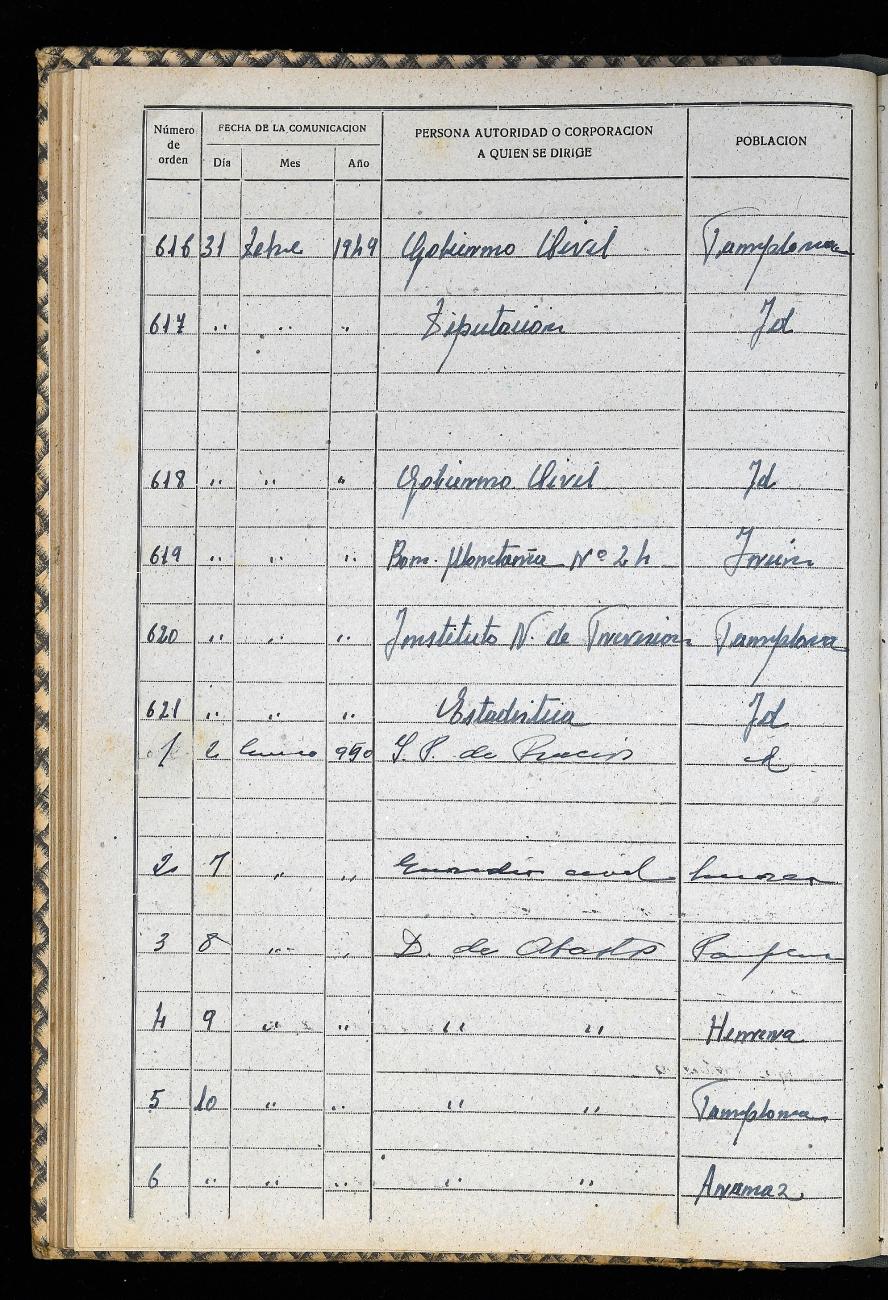 Número de orden FECHA DE LA COMUNICACION PERSONA AUTORIDAD O CORPORACION A QUIEN SE DIRIGE POBLACION
Día Mes Año
616 31 Dbre 1949 Gobierno Civil Pamplona
617 " " " Diputación Id
618 " " " Gobierno Civil Id
619 " " " Bon. Montaña Nº 24 Irún
620 " " " Instituto N. de Prevision Pamplona
621 " " " Estadistica Id
1 2 Enero 950 S. P. de Precios id
2 7 " " Guardia civil
3 8 " " D. de Abastos Pamplona
4 9 " " " " Herrera
5 10 " " " " Pamplona
6 " " " " " Aramaz